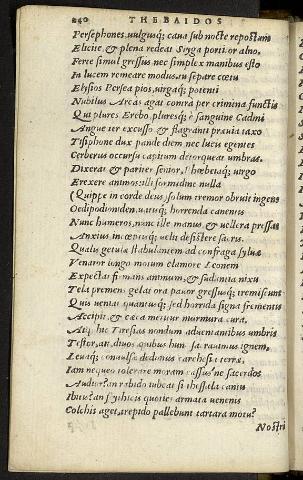 240 THEBAIDOS
Persephones, uulgusq; caua sub nocte repostum
Elicite, & plena redeat Styga portitor alno.
Ferte simul gressus nec simplex manibus esto
In lucem remeare modus, tu separe cœtu
Elysios Persea pios, uirgaq; potenti
Nubilus Arcas agat contra per crimina functis
Qui plures Erebo, pluresq; è sanguine Cadmi
Angue ter excusso & flagranti præuia taxo
Tisiphone dux pande diem nec lucis egentes
Cerberus occursu capitum detorqueat umbras.
Dixerat & pariter senior, Phœbeiaq; uirgo
Erexere animos: illi formidine nulla
(Quippe in corde deus) solum tremor obruit ingens
Oedipodioniden, uatisq; horrenda canentis
Nunc humeros, nunc ille manus & uellera pressat
Anxius inceptisq; uelit desistere sacris.
Qualis getulæ stabulantem ad confraga syluæ
Venator longo motum clamore Leonem
Expectat firmans animum, & sudantia nixu
Tela premens gelat ora pauor gressusq; tremiscunt
Quis ueniat quantusq; sed horrida signa frementis
Accipit, & cæca metitur murmura cura,
Atq; hic Tiresias nondum aduentantibus umbris
Testor, an, diuos quibus hunc saturauimus ignem,
Leuaq; conuulsæ dedimus carchesia terræ,
Iam nequeo tolerare moram cassusne sacerdos
Audior? an rabido iubeat si thessala cantu
Ibitis? an scythicis quoties armata uenenis
Colchis aget, trepido pallebunt tartara motu?
Nostri